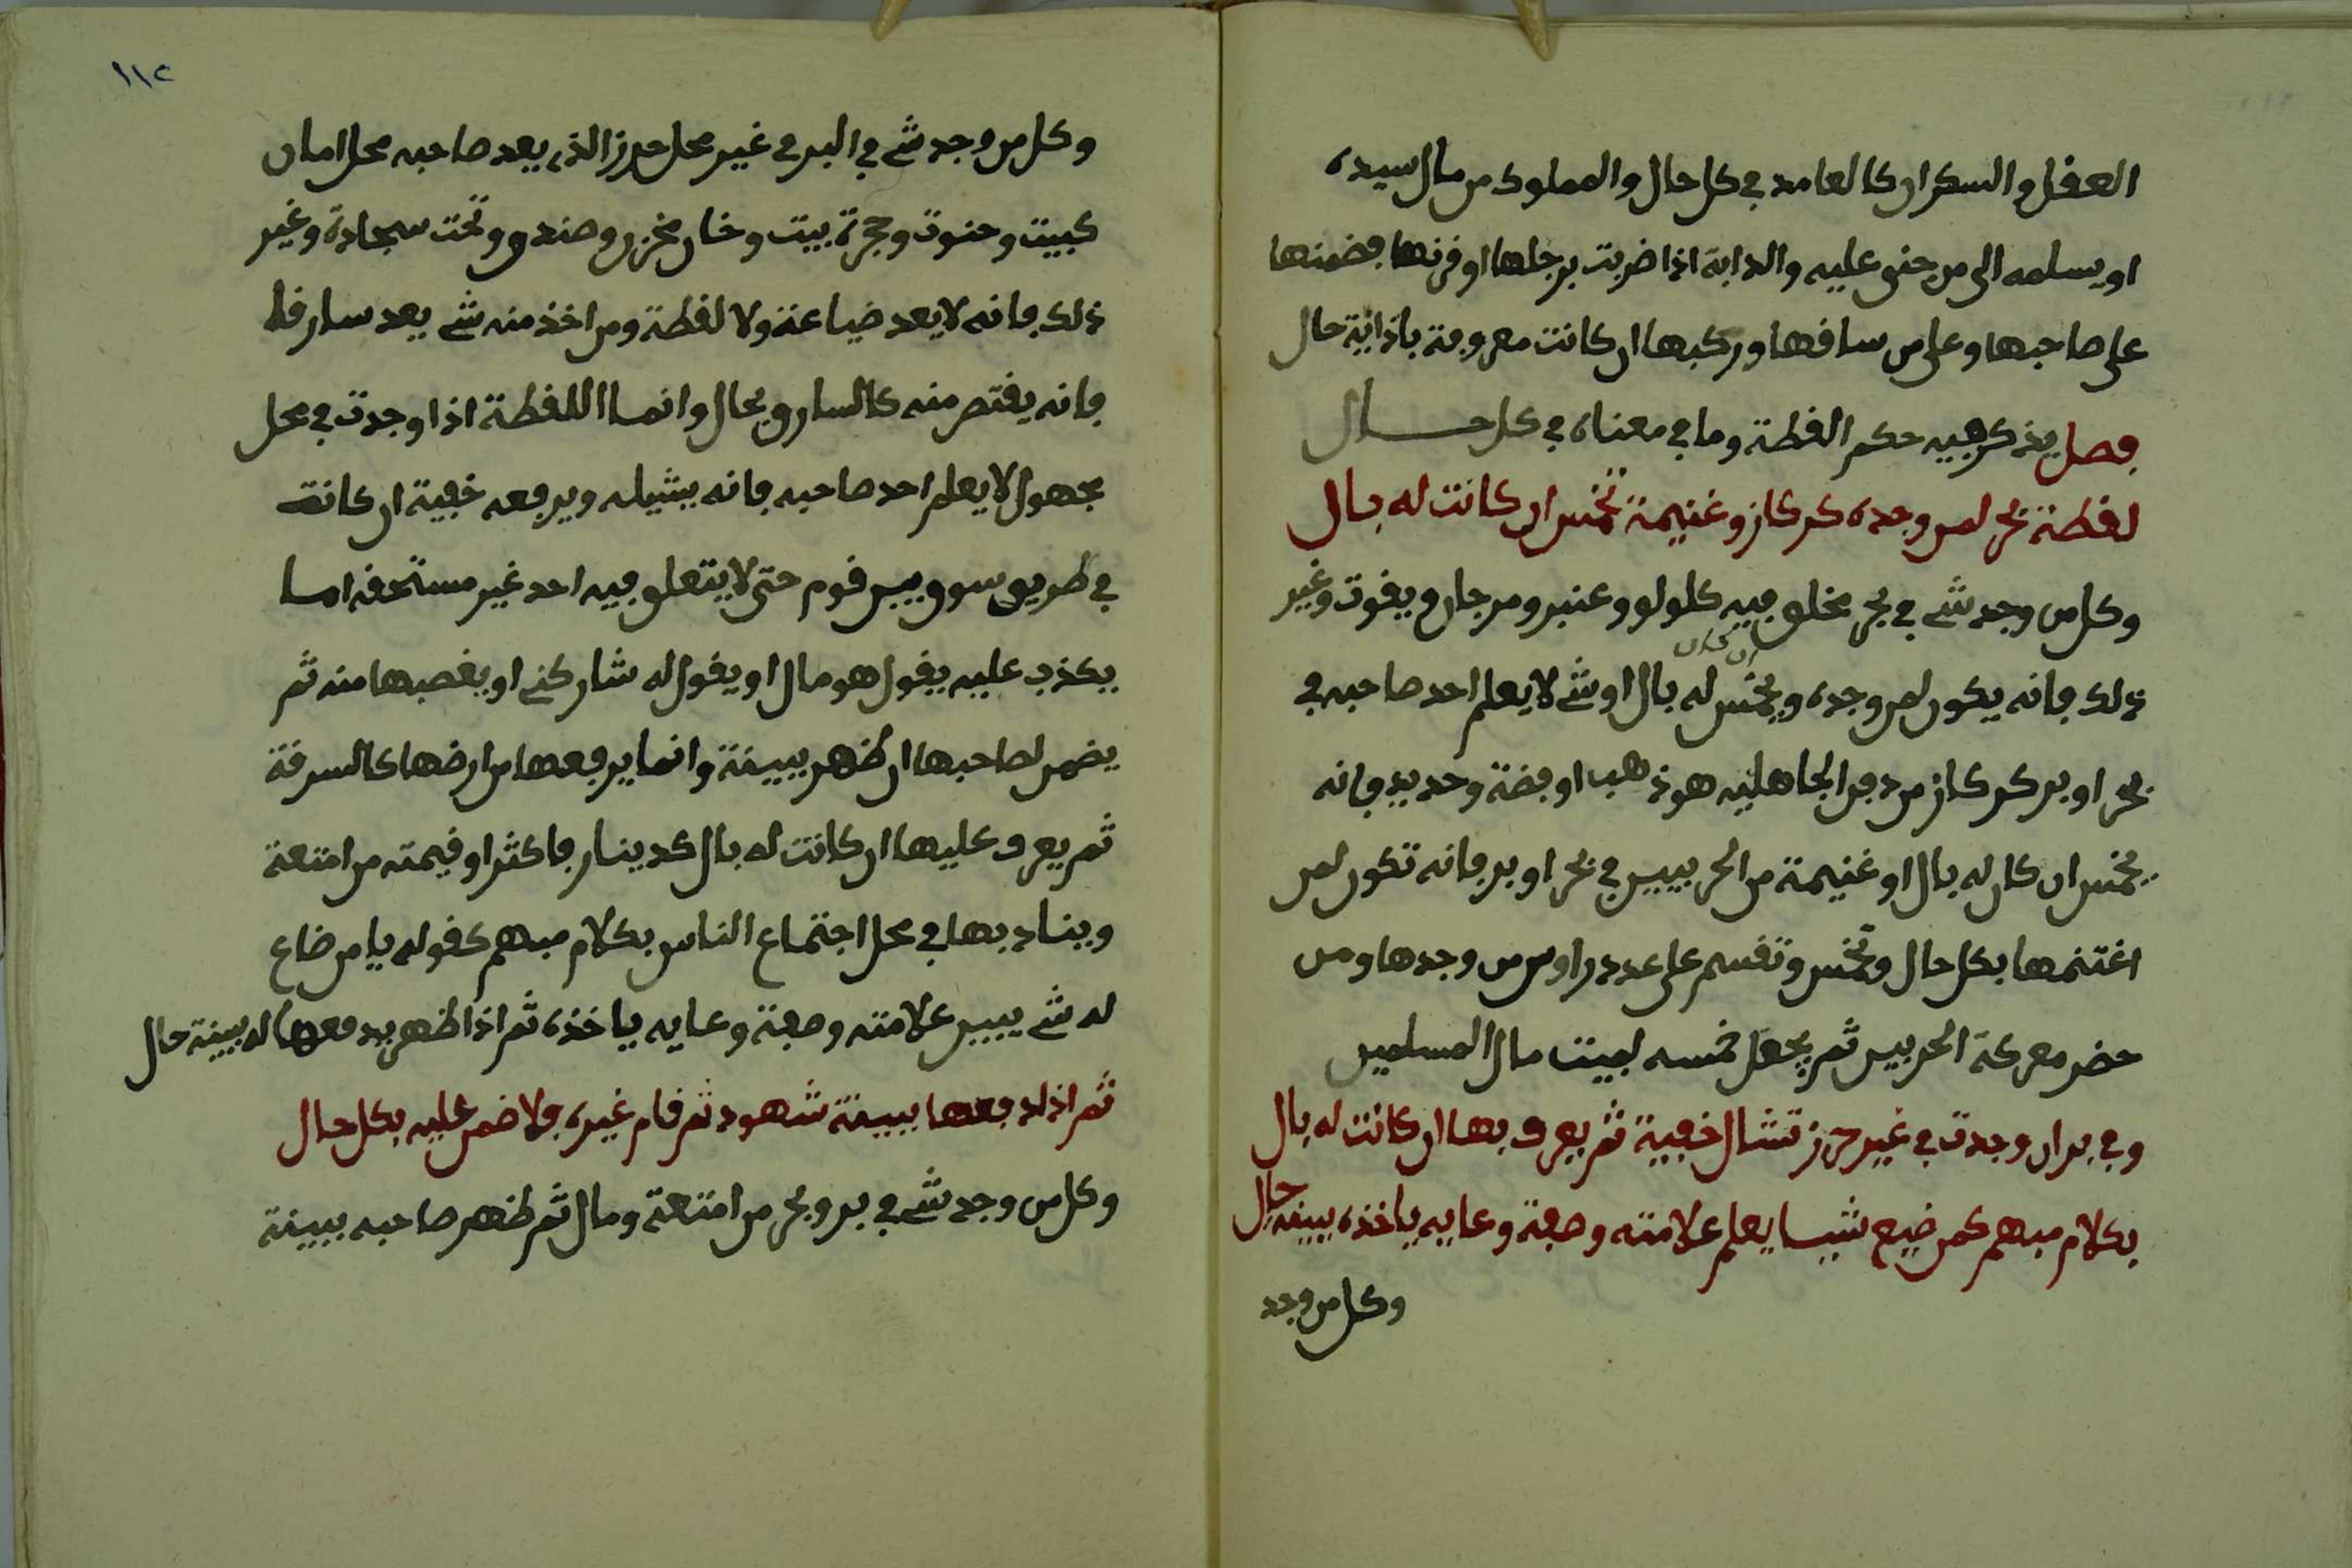 العقل والسكران كالعامد في كل حال والمملوك من مال سيده
او يسلمه الى من جنى عليه والدابة اذا ضربت برجلها او قرنها فضمنها
على صاحبها وعلى من ساقها وركبها ان كانت معروفة باذاية حال
فصل يذكر فيه حكم القطة وما في معناه في كل حال
لقطة بحر لمن وجده كركاز وغنيمة تخمس ان كانت له بال
وكل من وجد شي في بحر مخلوق فيه كلولو وعنبر ومرجان ويقوت وغير
ذلك فانه يكون لمن وجده ويخمس ان كان له بال او شي لا يعلم احد صاحبه في
بحر او بر كركاز من دفن الجاهلية هو ذهب او فضة وحديد فانه
يخمس ان كان له بال او غنيمة من الحربيين في بحر او بر فانه تكون لمن
اغتنمها بكل حال وتخمس وتقسم على عدد راوس من وجدها ومن
حضر معركة الحربيين ثم يجعل خمسه لبيت مال المسلمين
وفي بر ان وجدت في غير حرز تشال خفية ثم يعرف بها ان كانت له بال
بكلام مبهم كمن ضيع شيا يعلم علامته وصفة وعايه ياخذه ببينة حال
وكل من وجد
١١٢
وكل من وجد شي في البر في غير محل حرز الذي يعد صاحبه محل امان
كبيت وحنوت وحجرة بيت وخان مخزن وصندوق وتحت سجادة وغير
ذلك فانه لا يعد ضياعة ولا لقطة ومن اخذ منه شي يعد سارقا
فانه يقتص منه كالسارق بحال وانما اللقطة اذا وجدت في محل
مجهول لا يعلم احد صاحبه فانه يشيله ويرفعه خفية ان كانت
في طريق سوق وبين قوم حتى لا يتعلق فيه احد غير مستحقه اما
يكذب عليه يقول هو مال او يقول له شاركني او يغصبها منه ثم
يضمن لصاحبها ان ظهر ببينة وانما يرفعها من ارضها كالسرقة
ثم يعرف عليها ان كانت له بال كدينار فاكثر او قيمته من امتعة
وينادي بها في محل اجتماع الناس بكلام مبهم كقوله يا من ضاع
له شي يبين علامته وصفة وعايه ياخذه ثم اذا ظهر يدفعها له ببينة حال
ثم اذا دفعها ببينة شهود ثم قام غيره فلا ضمن عليه بكل حال
وكل من وجد شي في بر وبحر من امتعة ومال ثم ظهر صاحبه ببينة